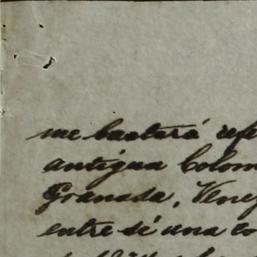 me bastará refe
antigua Colom
Granada, Vene
entre sí una co